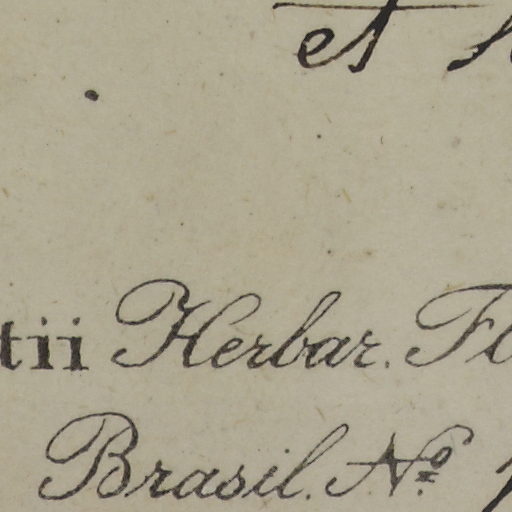 et
tii Herbar. Fl
Brasil. Nº